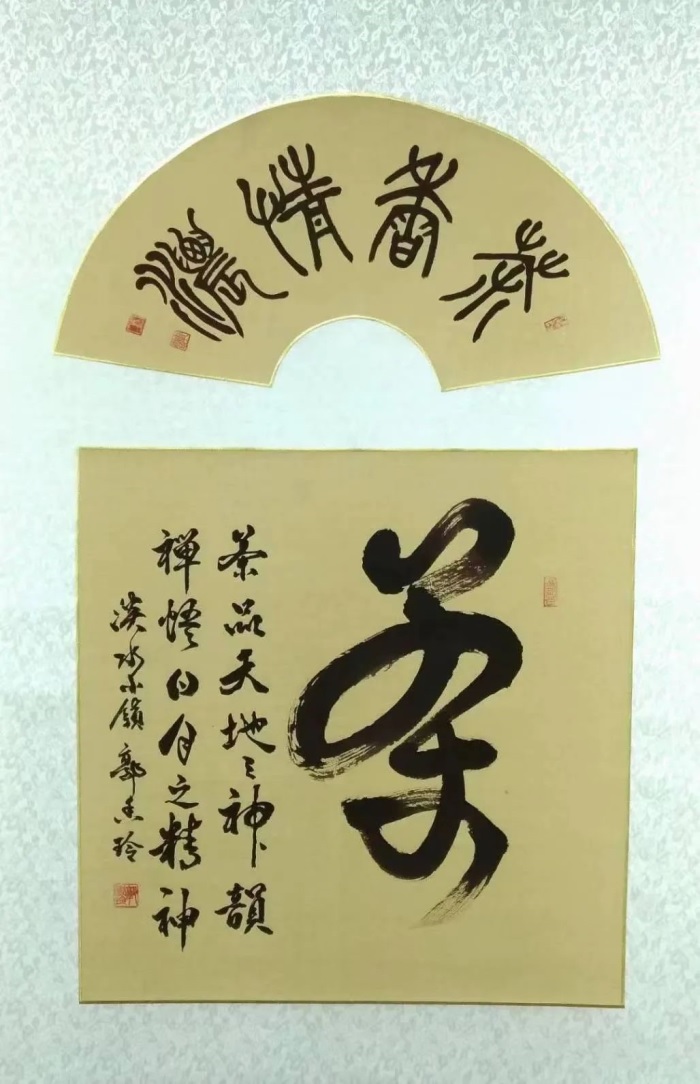 茶香情濃
茶
茶品天地之神韻
禅悟日月之精神
淡水小 郭 玲